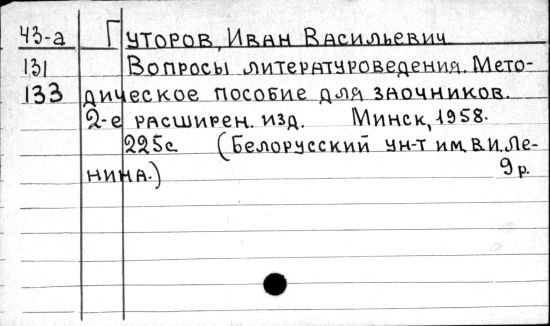 43-а Гуторов, Иван Васильевич
131 Вопросы литературоведения. Мето-
133 дическое пособие для заочников.
2-е расширен. изд. Минск, 1958.
225с. (Белорусский ун-т им. В.И. Ле-
нина.) 9р.